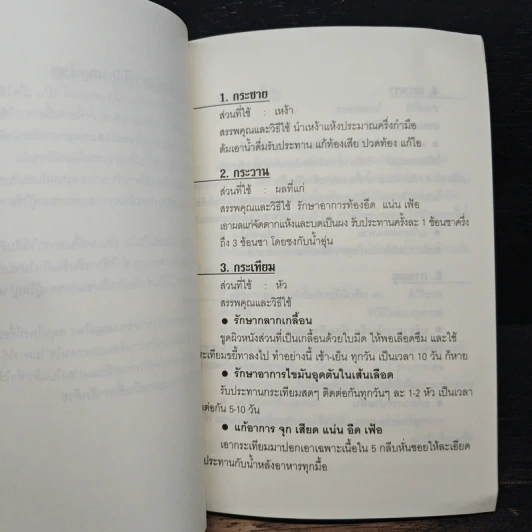 1. กระชาย
ส่วนที่ใช้ : เหง้า
สรรพคุณและวิธีใช้ นำเหง้าแห้งประมาณครึ่งกำมือ
ต้มเอาน้ำดื่มรับประทาน แก้ท้องเสีย ปวดท้อง แก้ไอ
2. กระวาน
ส่วนที่ใช้ : ผลที่แก่
สรรพคุณและวิธีใช้ รักษาอาการท้องอืด แน่น เฟ้อ
เอาผลแก่จัดตากแห้งและบดเป็นผง รับประทานครั้งละ 1 ช้อนชาครึ่ง
ถึง 3 ช้อนชา โดยชงกับน้ำอุ่น
3. กระเทียม
ส่วนที่ใช้ : หัว
สรรพคุณและวิธีใช้
● รักษากลากเกลื้อน
ขูดผิวหนังส่วนที่เป็นเกลื้อนด้วยใบมีด ให้พอเลือดซึม และใช้
ะเทียมขยี้ทาลงไป ทำอย่างนี้ เช้า-เย็น ทุกวัน เป็นเวลา 10 วัน ก็หาย
● รักษาอาการไขมันอุดตันในเส้นเลือด
รับประทานกระเทียมสดๆ ติดต่อกันทุกวันๆ ละ 1-2 หัว เป็นเวลา
ต่อกัน 5-10 วัน
● แก้อาการ จุก เสียด แน่น อืด เฟ้อ
เอากระเทียมมาปอกเอาเฉพาะเนื้อใน 5 กลีบหั่นซอยให้ละเอียด
ประทานกับน้ำหลังอาหารทุกมื้อ